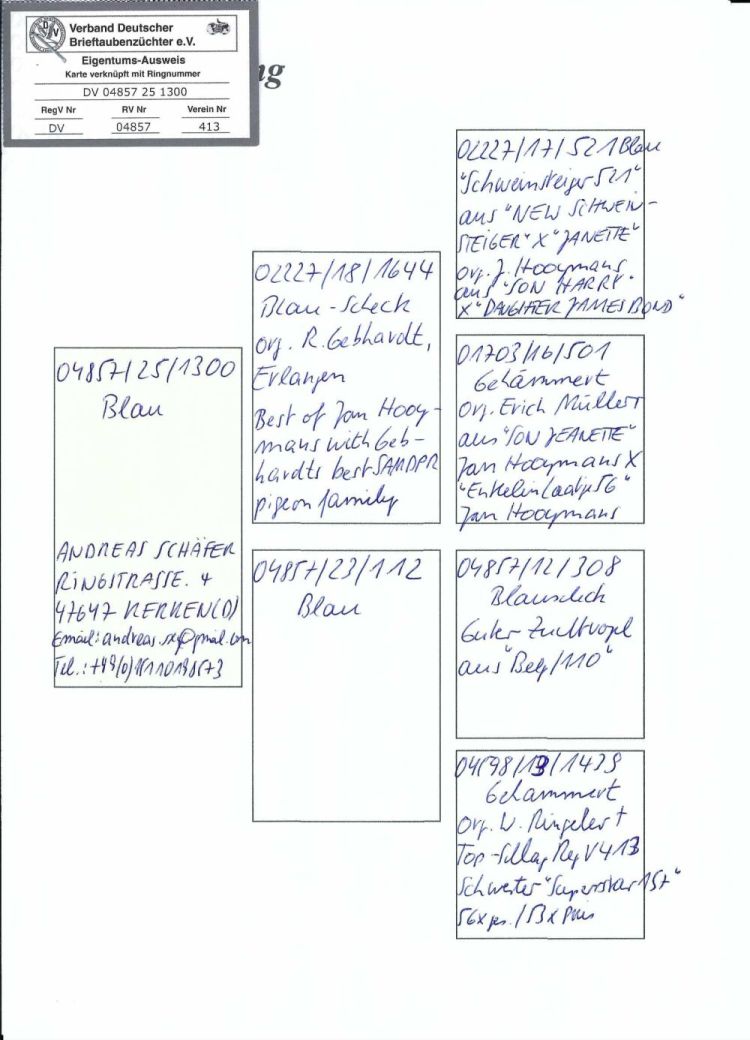 Verband Deutscher
Brieftaubenzüchter e.V.
Eigentums-Ausweis
Karte verknüpft mit Ringnummer
DV 04857 25 1300
RegV Nr RV Nr Verein Nr
DV 04857 413
ng
04857/25/1300
Blau
ANDREAS SCHÄFER
RINGSTRASSE. 4
47647 KERKEN(D)
Email: andreas.
Tel.:
02227/18/1644
Blau-Scheck
Org. R. Gebhardt,
Erlangen
Best of Jan Hooy-
mans with Geb-
hardts best
pigeon family
04857/23/112
Blau
02227/17/521 Blau
"Schweinsteiger 521"
aus "NEW SCHWEIN-
STEIGER" X "JANETTE"
Org. J. Hooymans
aus "SON HARRY"
X "DAUGHTER JAMES BOND"
01703/16/501
Gehämmert
Org. Erich Müller †
aus "SON JEANETTE"
Jan Hooymans X
"Enkelin
Jan Hooymans
04857/12/308
Guter Zuchtvogel
aus "Belg/110"
Gehämmert
Org. W.
Top-Schlag RegV 413
Schwester "Superstar 157"
56x ges./53x Preis